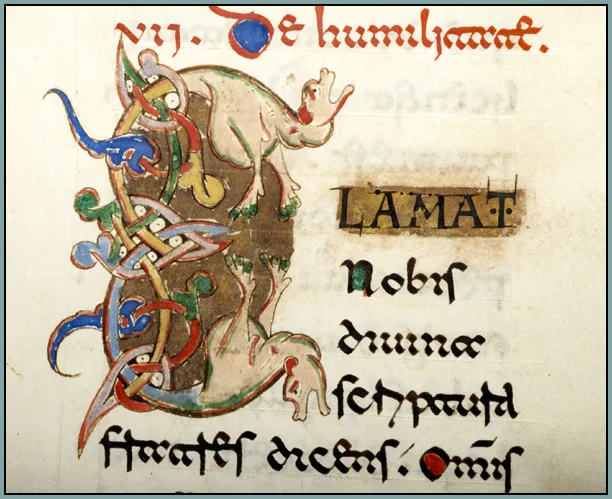 VII. De humilitate.
CLAMAT
Nobis
divina
scriptura
fratres dicens. Om̄is